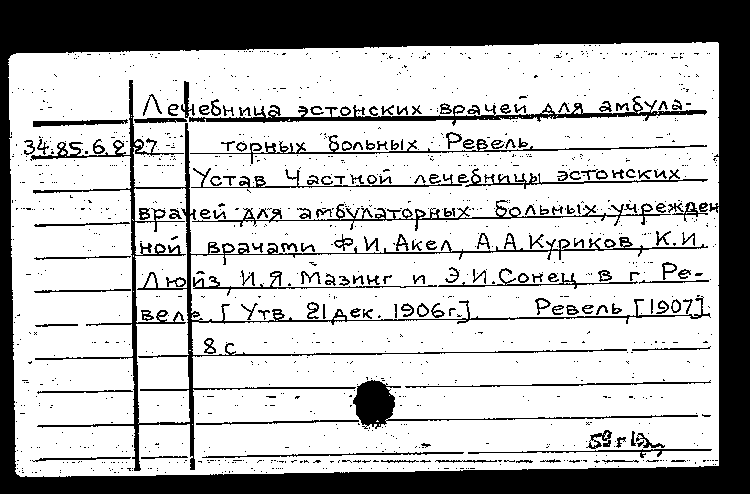 Лечебница эстонских врачей для амбула-
34.85.6.227 торных больных. Ревель.
Устав Частной лечебницы эстонских
врачей для амбулаторных больных, учрежден
ной врачами Ф.И. Акел, А.А. Куриков, К.И.
Люйз, И.Я. Мазинг и Э.И. Сонец в г. Ре-
веле. [Утв. 21 дек. 1906 г.]. Ревель, [1907].
8 с.